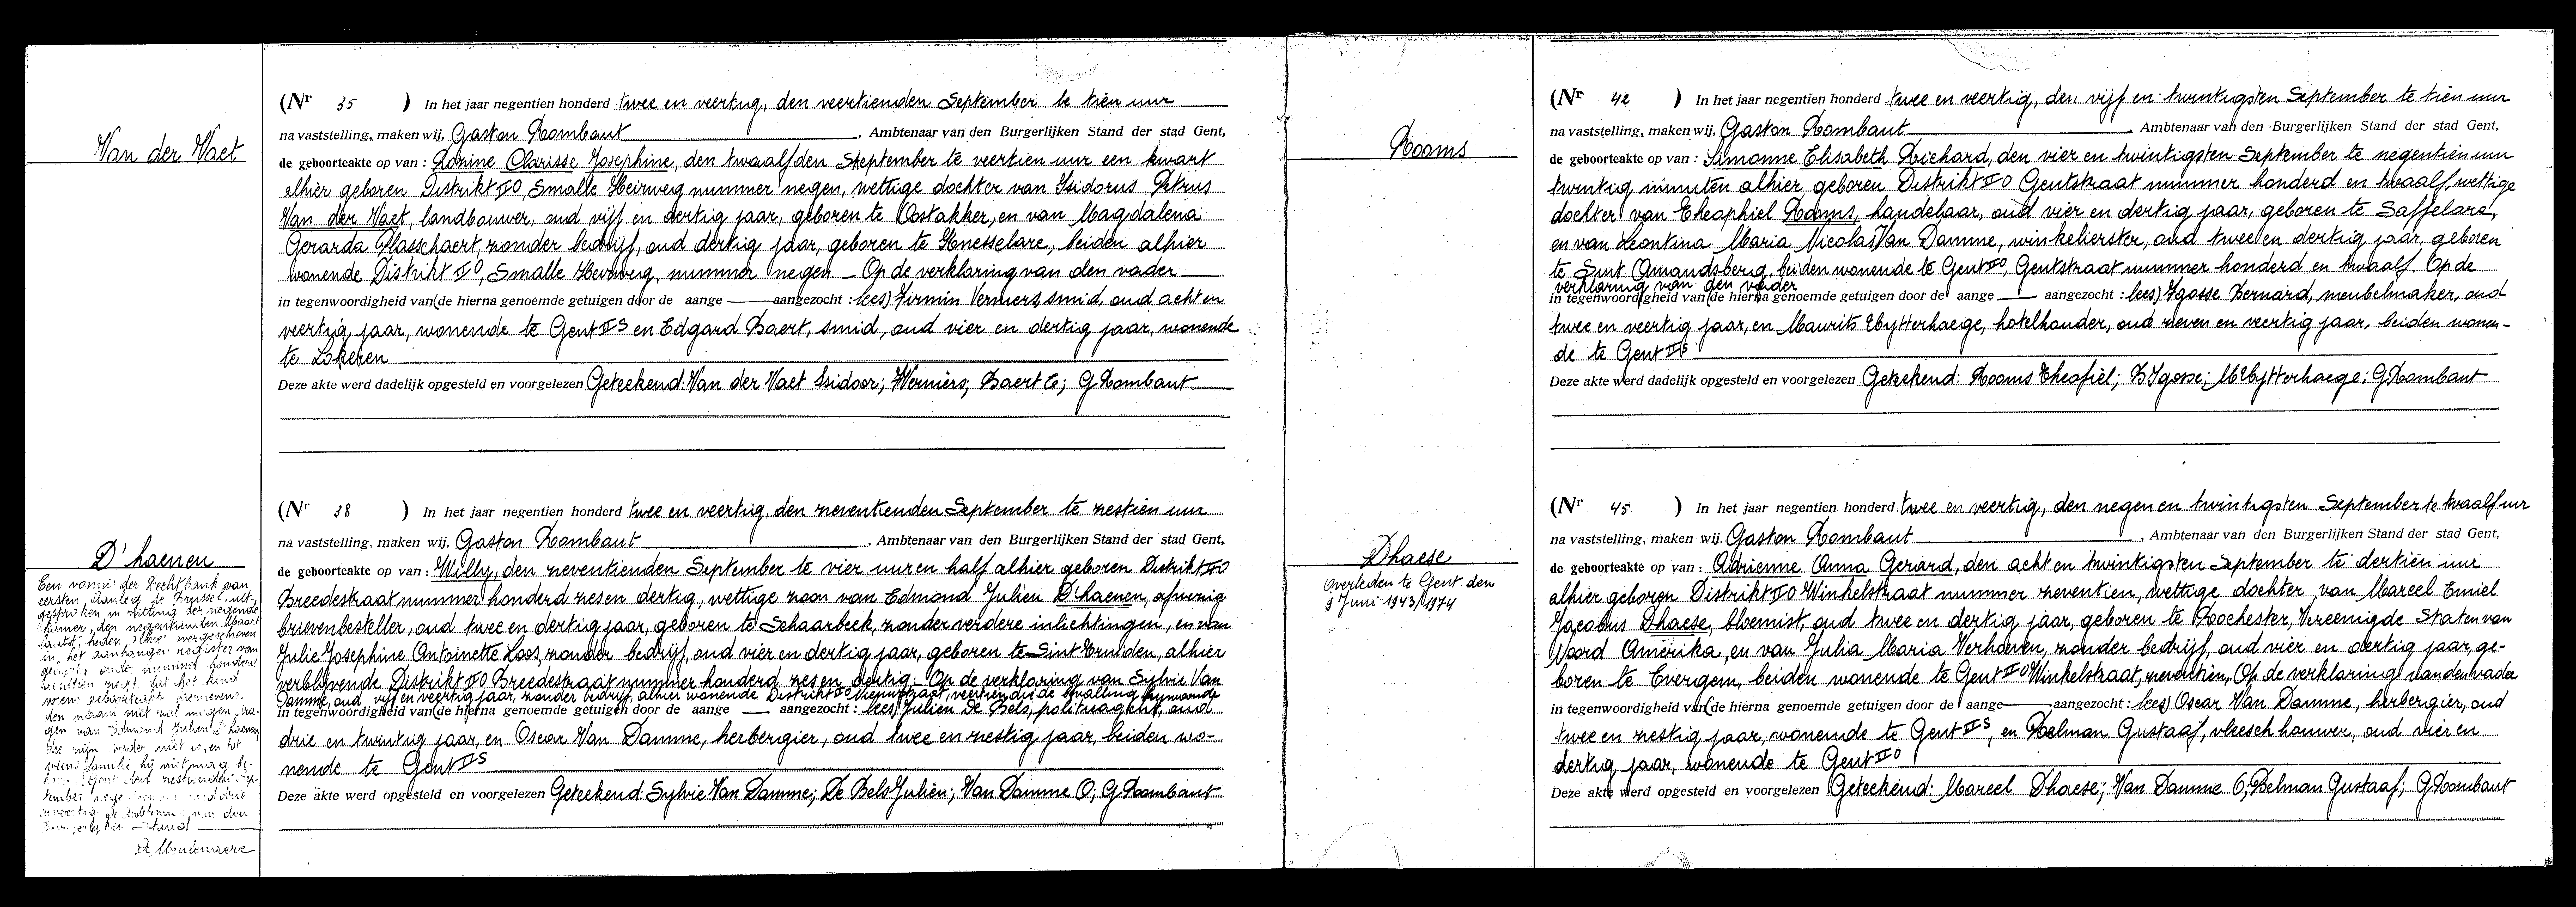 Van der Vaet
(Nr 35 ) In het jaar negentien honderd twee en veertig, den veertienden September te tien uur
na vaststelling, maken wij, Gaston Rombaut, Ambtenaar van den Burgerlijken Stand der stad Gent,
de geboorteakte op van : Clarisse Josephine, den twaalfden September te veertien uur een kwart
alhier geboren Distrikt IIO, Smalle Heirweg nummer negen, wettige dochter van Isidorus Petrus
Van der Vaet, landbouwer, oud vijf en dertig jaar, geboren te Oostakker, en van Magdalena
Gerarda Plasschaert, zonder bedrijf, oud dertig jaar, geboren te Knesselare, beiden alhier
wonende Distrikt IIO, Smalle Heirweg, nummer negen - Op de verklaring van den vader
in tegenwoordigheid van (de hierna genoemde getuigen door de aange — aangezocht : lees) Firmin Vermeers, smid, oud acht en
veertig jaar, wonende te Gent IIS en Edgard Baert, smid, oud vier en dertig jaar, wonende
te Lokeren
Deze akte werd dadelijk opgesteld en voorgelezen Geteekend: Van der Vaet Isidoor; Baert E; G Rombaut
D'haenen
Een vonnis der Rechtbank van
eersten Aanleg te Brussel uit-
gesproken in zitting der negende
kamer, den negentienden Maart
in het aanhangen register van
den naam niet zal mogen dra-
gen van Edmond Julien D'haenen
die zijn vader niet is, en tot
(Nr 38 ) In het jaar negentien honderd twee en veertig, den zeventienden September te zestien uur
na vaststelling, maken wij, Gaston Rombaut, Ambtenaar van den Burgerlijken Stand der stad Gent,
de geboorteakte op van : Willy, den zeventienden September te vier uur en half alhier geboren Distrikt IIO
Breedestraat nummer honderd zes en dertig, wettige zoon van Edmond Julien D'haenen, afwezig
brievenbesteller, oud twee en dertig jaar, geboren te Schaarbeek, zonder verdere inlichtingen, en van
Julie Josephine Antoinette Loos, zonder bedrijf, oud vier en dertig jaar, geboren te Sint Truiden, alhier
verblijvende Distrikt IIO Breedestraat nummer honderd zes en dertig - Op de verklaring van Sylvie Van
Damme, oud vijf en veertig jaar, zonder bedrijf, alhier wonende Distrikt IIO veertien die de bevalling bijwoonde
in tegenwoordigheid van (de hierna genoemde getuigen door de aange — aangezocht : lees) Julien De Bels, politieagent, oud
drie en twintig jaar, en Oscar Van Damme, herbergier, oud twee en zestig jaar, beiden wo-
nende te Gent IIS
Deze akte werd opgesteld en voorgelezen Geteekend: Sylvie Van Damme; De Bels Julien; Van Damme O; G Rombaut
Rooms
(Nr 42 ) In het jaar negentien honderd twee en veertig, den vijf en twintigsten September te tien uur
na vaststelling, maken wij, Gaston Rombaut, Ambtenaar van den Burgerlijken Stand der stad Gent,
de geboorteakte op van : Simonne Elisabeth Richard, den vier en twintigsten September te negentien uur
twintig minuten alhier geboren Distrikt IIO Gentstraat nummer honderd en twaalf, wettige
dochter van Theophiel Rooms, handelaar, oud vier en dertig jaar, geboren te Saffelare,
en van Leontina Maria Nicolas Van Damme, winkelierster, oud twee en dertig jaar, geboren
te Sint Amandsberg, beiden wonende te Gent IIO, Gentstraat nummer honderd en twaalf Op de
verklaring van den vader
in tegenwoordigheid van (de hierna genoemde getuigen door de aange — aangezocht : lees) Ygosse Bernard, meubelmaker, oud
twee en veertig jaar, en Maurits Uytterhaege, hotelhouder, oud zeven en veertig jaar, beiden wonen-
de te Gent IIS
Deze akte werd dadelijk opgesteld en voorgelezen Geteekend: Rooms Theofiel; B Ygosse; M Uytterhaege; G Rombaut
Dhaese
Overleden te Gent den
9 Juni 1943/1974
(Nr 45 ) In het jaar negentien honderd twee en veertig, den negen en twintigsten September te twaalf uur
na vaststelling, maken wij, Gaston Rombaut, Ambtenaar van den Burgerlijken Stand der stad Gent,
de geboorteakte op van : Adrienne Anna Gerard, den acht en twintigsten September te dertien uur
alhier geboren Distrikt IIO Winkelstraat nummer zeventien, wettige dochter van Marcel Emiel
Jacobus Dhaese, bloemist, oud twee en dertig jaar, geboren te Rochester, Vereenigde Staten van
Noord Amerika, en van Julia Maria Verhoeven, zonder bedrijf, oud vier en dertig jaar, ge-
boren te Evergem, beiden wonende te Gent IIO Winkelstraat, zeventien, Op de verklaring van den vader
in tegenwoordigheid van (de hierna genoemde getuigen door de aange — aangezocht : lees) Oscar Van Damme, herbergier, oud
twee en zestig jaar, wonende te Gent IIS, en Belman Gustaaf, vleeschhouwer, oud vier en
dertig jaar, wonende te Gent IIO
Deze akte werd opgesteld en voorgelezen Geteekend: Marcel Dhaese; Van Damme O; Belman Gustaaf; G Rombaut